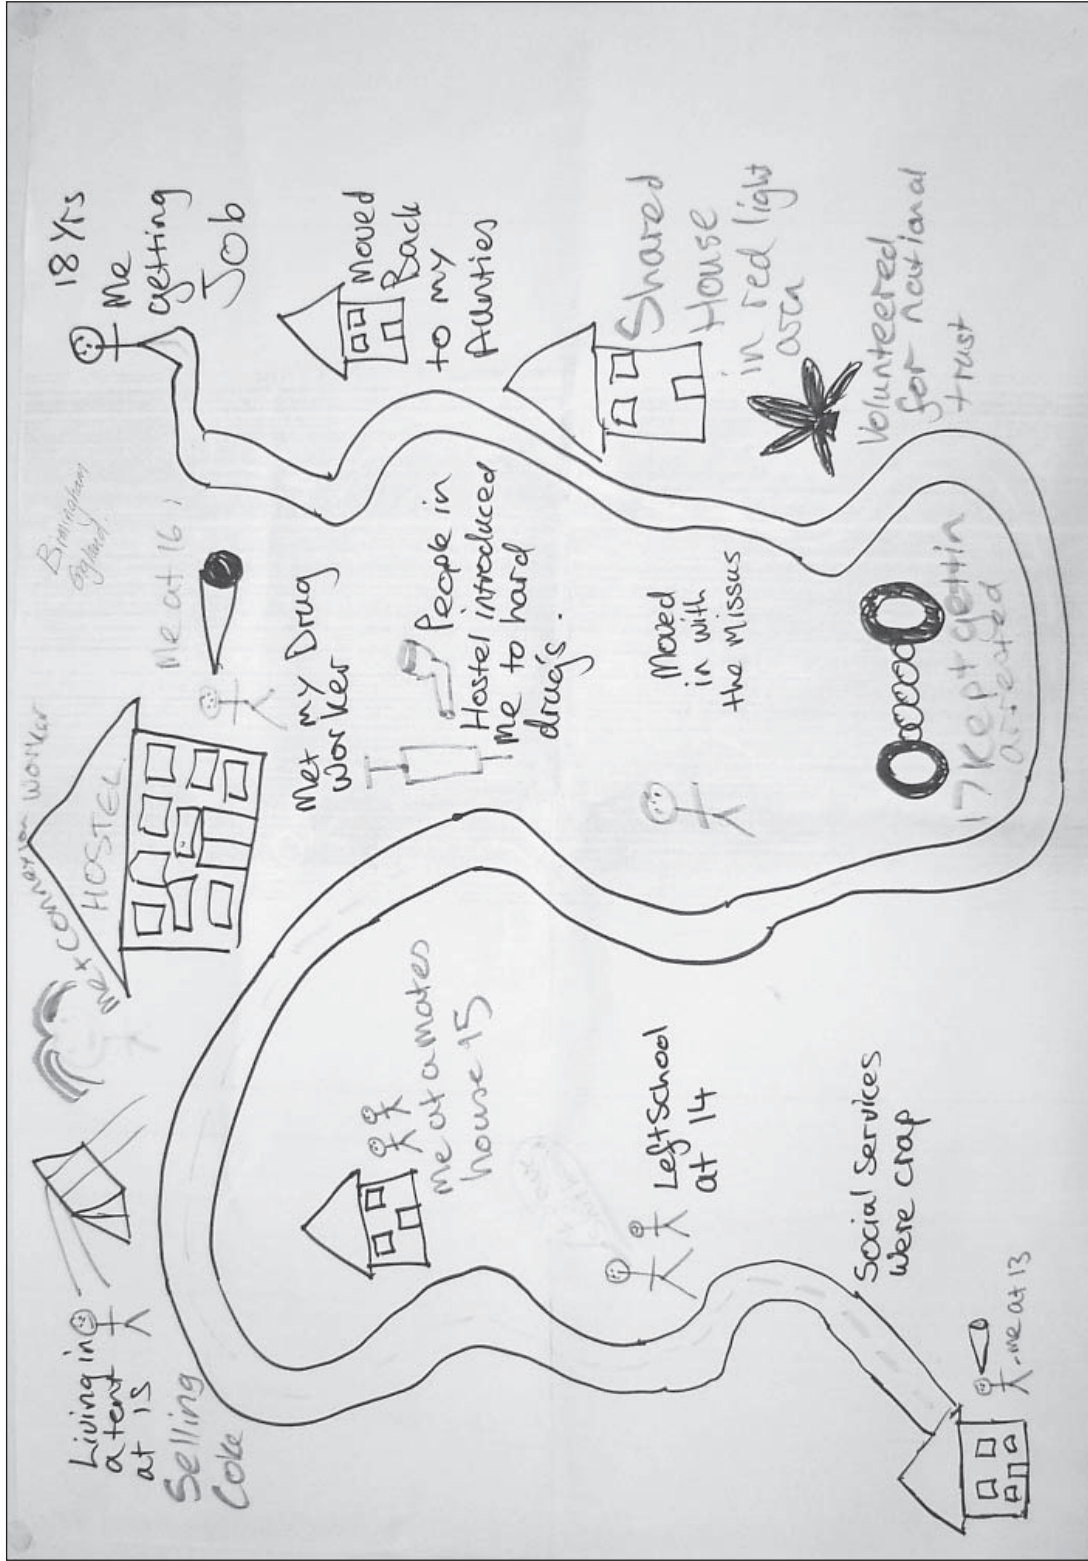 Me at 13
Social Services
were crap
Left School
at 14
me at a mates
house 15
Living in
a tent
at 15
Selling
Coke
met connexion worker
HOSTEL
Me at 16
Birmingham
England
Met my Drug
worker
People in
Hostel introduced
me to hard
drug's.
Moved
in with
the missus
17 Kept gettin
arrested
Volunteered
for national
trust
Shared
House
in red light
area
Moved
Back
to my
Aunties
18 Yrs
Me
getting
Job